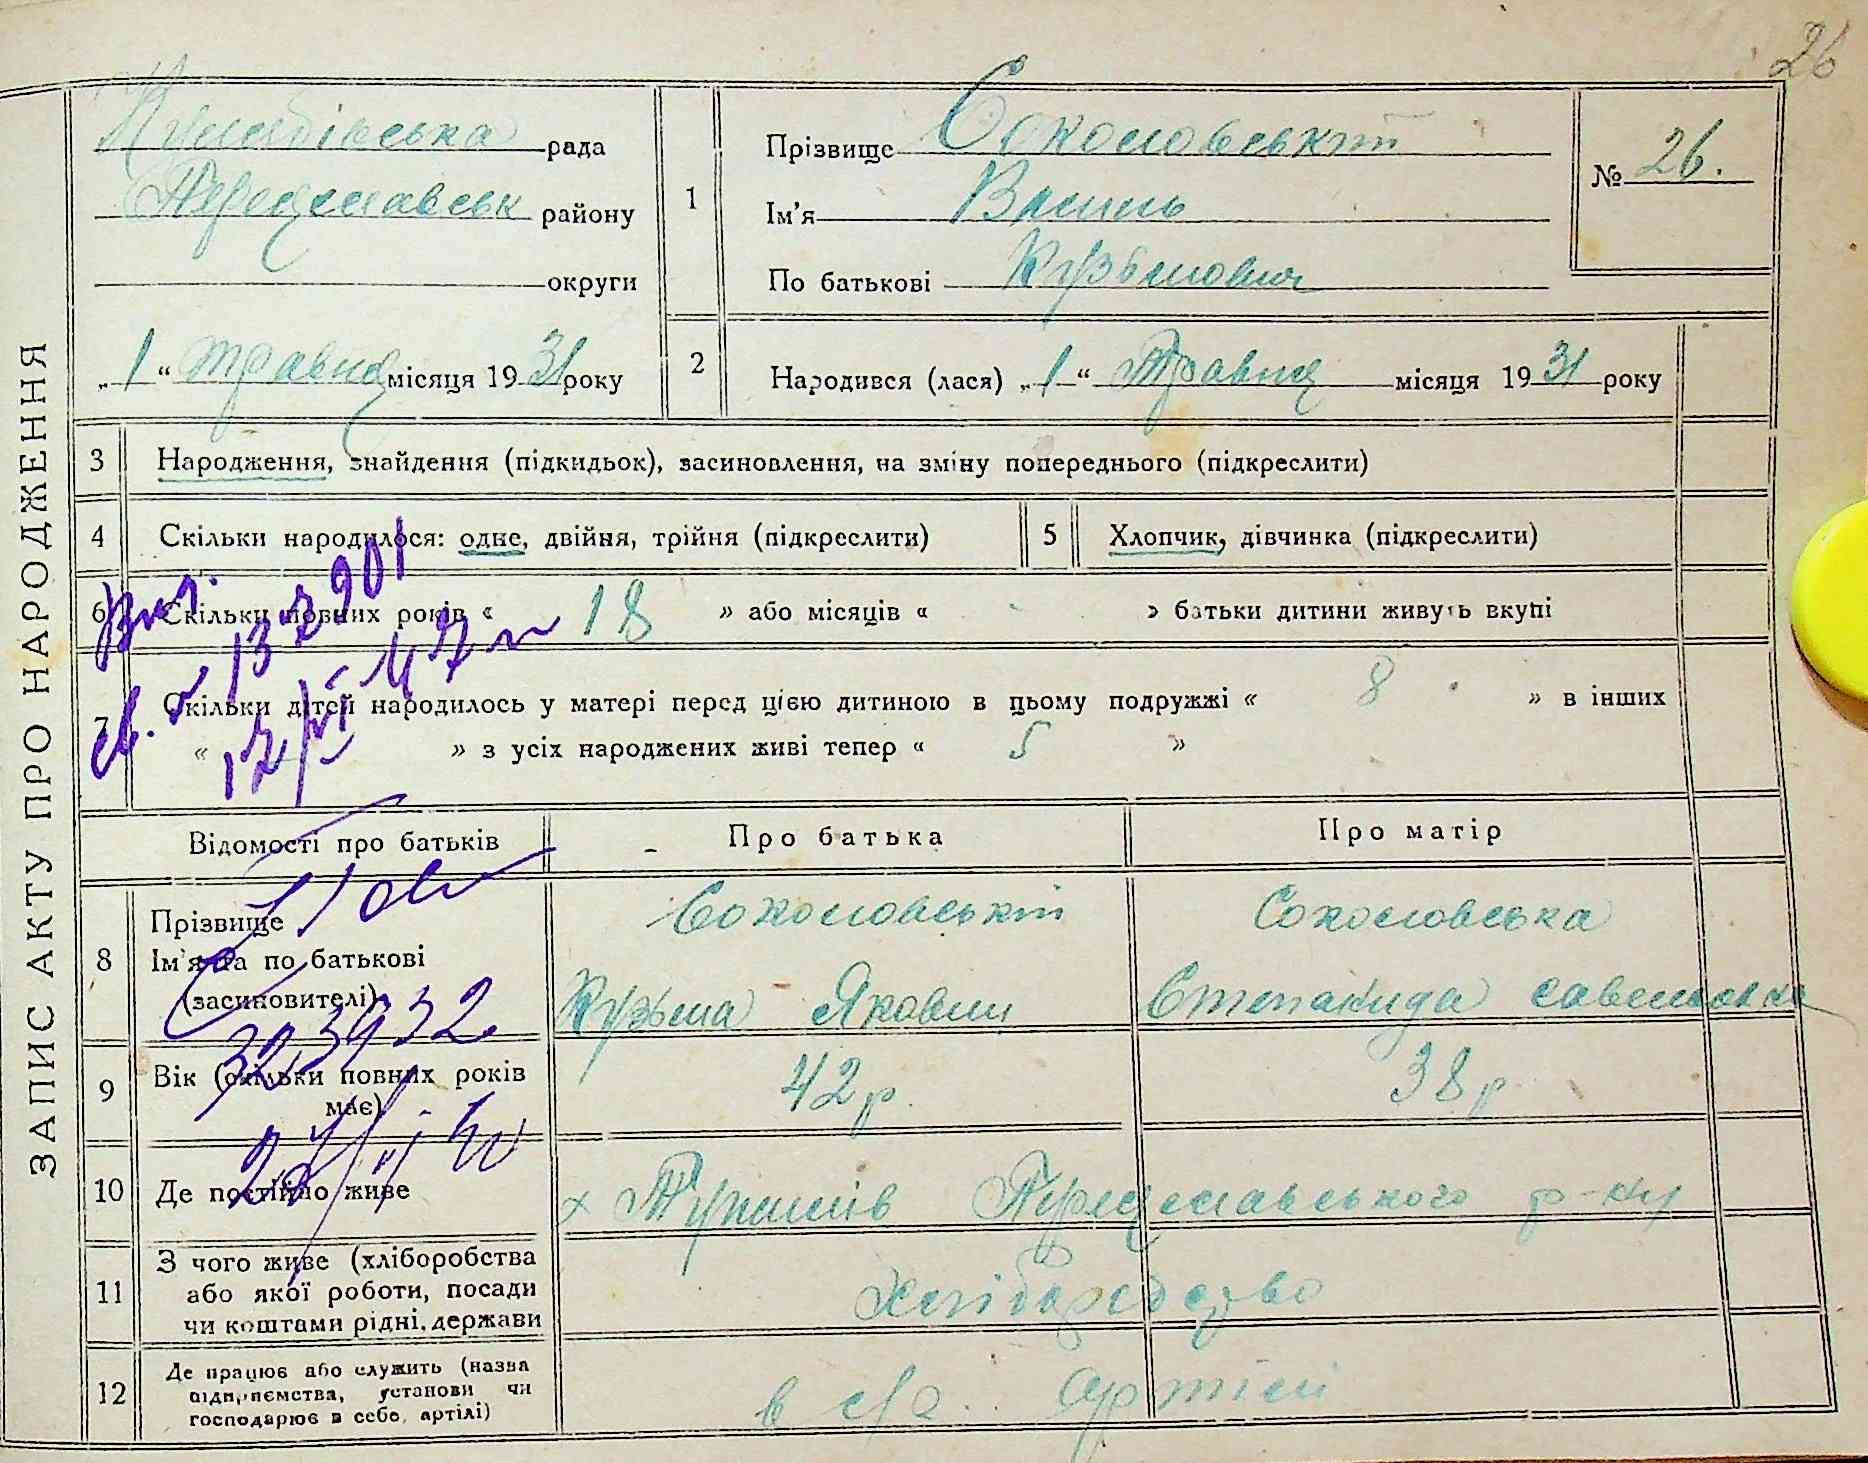 26
ЗАПИС АКТУ ПРО НАРОДЖЕННЯ
рада
району
округи
„1“ травня місяця 1931 року
1
Прізвище Соколовський
Ім'я Василь
По батькові Кузьмович
№ 26.
2
Народився (лася) „1“ Травня місяця 1931 року
3 Народження, знайдення (підкидьок), засиновлення, на зміну попереднього (підкреслити)
4 Скільки народилося: одне, двійня, трійня (підкреслити)
5 Хлопчик, дівчинка (підкреслити)
6 Скільки повних років « 18 » або місяців « - » батьки дитини живуть вкупі
7 Скільки дітей народилось у матері перед цією дитиною в цьому подружжі « 8 » в інших
« » з усіх народжених живі тепер « 5 »
Відомості про батьків
Про батька
Про матір
8 Прізвище
Ім'я та по батькові
(засиновителі)
Соколовський
Кузьма Яковл
Соколовська
Степанида савеловна
9 Вік (скільки повних років має)
42 р.
38 р
10 Де постійно живе
х Переяславського р-ну
11 З чого живе (хліборобства
або якої роботи, посади
чи коштами рідні, держави
хліборобство
12 Де працює або служить (назва
підприємства, установи чи
господарює в себе, артілі)
в с/г. артілі